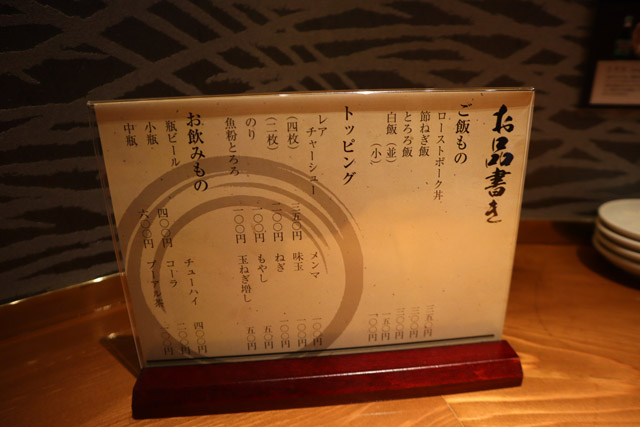 お品書き
ご飯もの
ローストポーク丼 三五〇円
節ねぎ飯 三〇〇円
とろろ飯 三〇〇円
白飯（並） 一五〇円
（小） 一〇〇円
トッピング
レアチャーシュー
（四枚） 三五〇円
（二枚） 二〇〇円
のり 一〇〇円
魚粉とろろ 一〇〇円
メンマ 一〇〇円
味玉 一〇〇円
ねぎ 一〇〇円
もやし 五〇円
玉ねぎ増し 五〇円
お飲みもの
瓶ビール
小瓶 四〇〇円
中瓶 六〇〇円
チューハイ 四〇〇円
コーラ 二〇〇円
プーアル茶